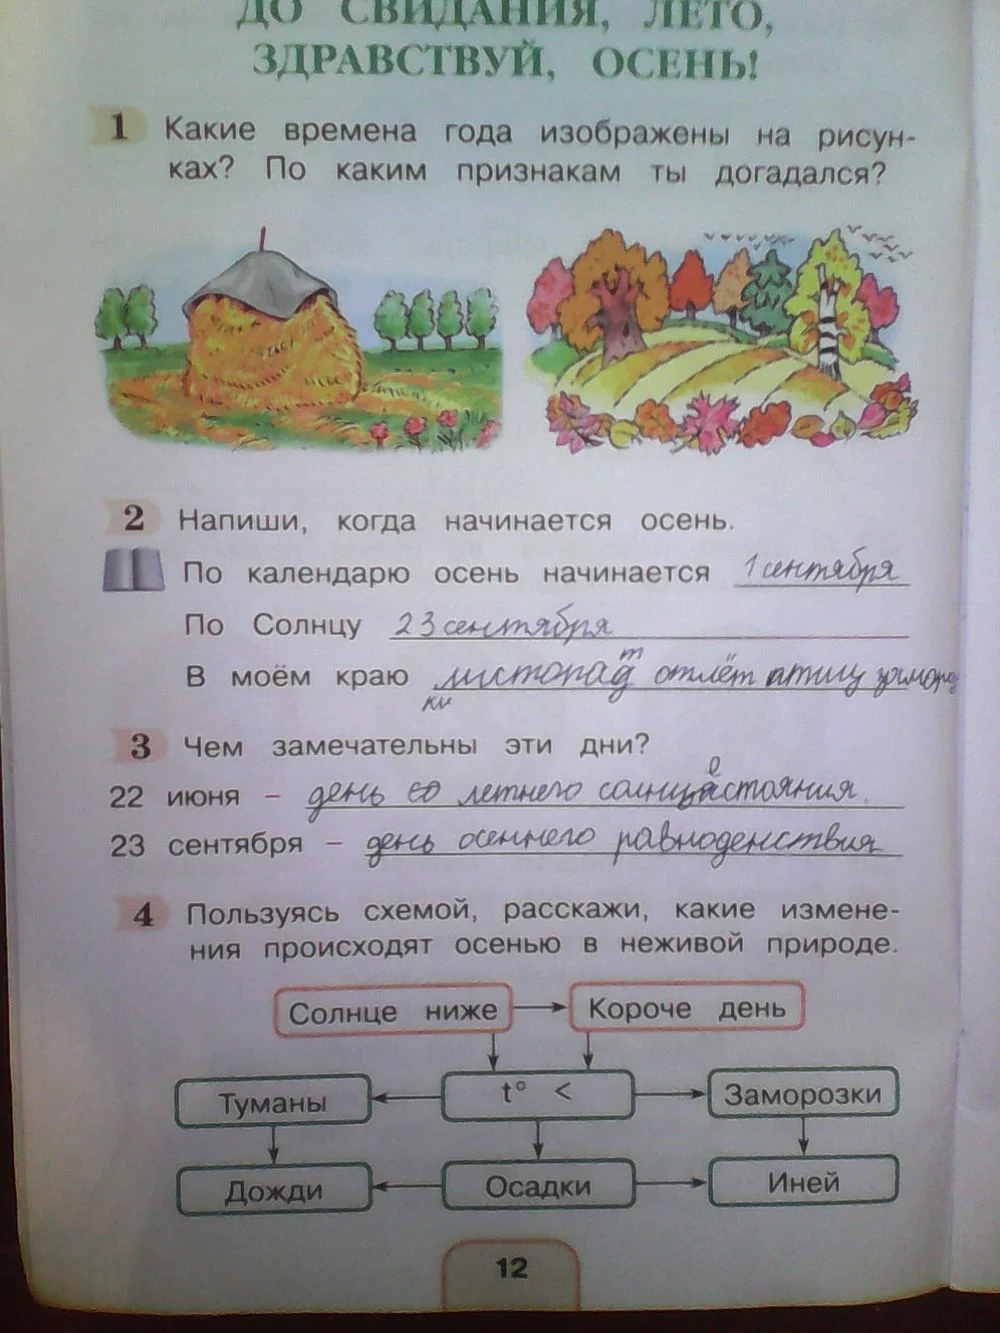 ДО СВИДАНИЯ, ЛЕТО,
ЗДРАВСТВУЙ, ОСЕНЬ!
1 Какие времена года изображены на рисун-
ках? По каким признакам ты догадался?
2 Напиши, когда начинается осень.
По календарю осень начинается 1 сентября
По Солнцу 23 сентября
В моём краю листопад отлёт птиц замороз
ки
3 Чем замечательны эти дни?
22 июня – день летнего солнцестояния.
23 сентября – день осеннего равноденствия
4 Пользуясь схемой, расскажи, какие измене-
ния происходят осенью в неживой природе.
Солнце ниже Короче день
Туманы t° < Заморозки
Дожди Осадки Иней
12